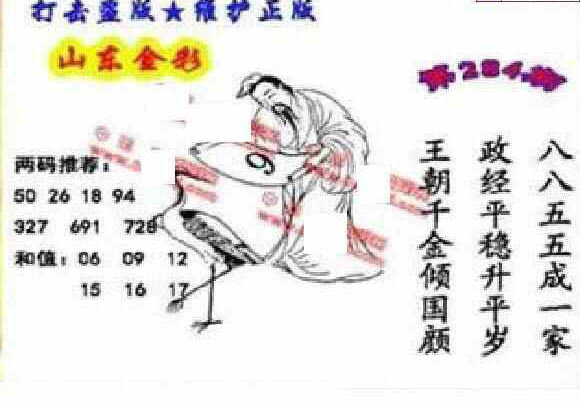 打击盗版★维护正版
山东金彩
第284期
两码推荐：
50 26 18 94
327 691 728
和值：06 09 12
15 16 17
9
八八五五成一家
政经平稳升平岁
王朝千金倾国颜